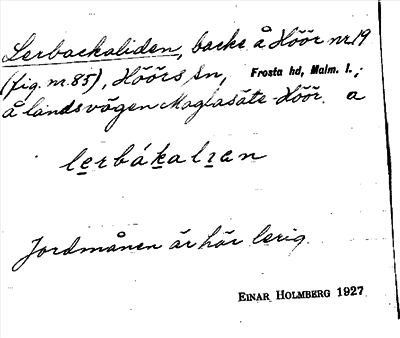 Lerbackaliden, backe å Höör nr 19
(fig. nr. 85), Höörs sn, Frosta hd, Malm. l.;
å landsvägen Maglasäte - Höör. a
lerbákalian
Jordmånen är här lerig.
EINAR HOLMBERG 1927